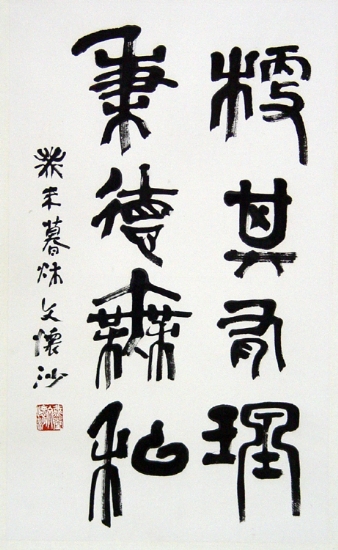 梗其有理
秉德無私
癸未暮秋文懷沙